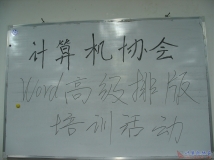 计算机协会
Word高级排版
培训活动